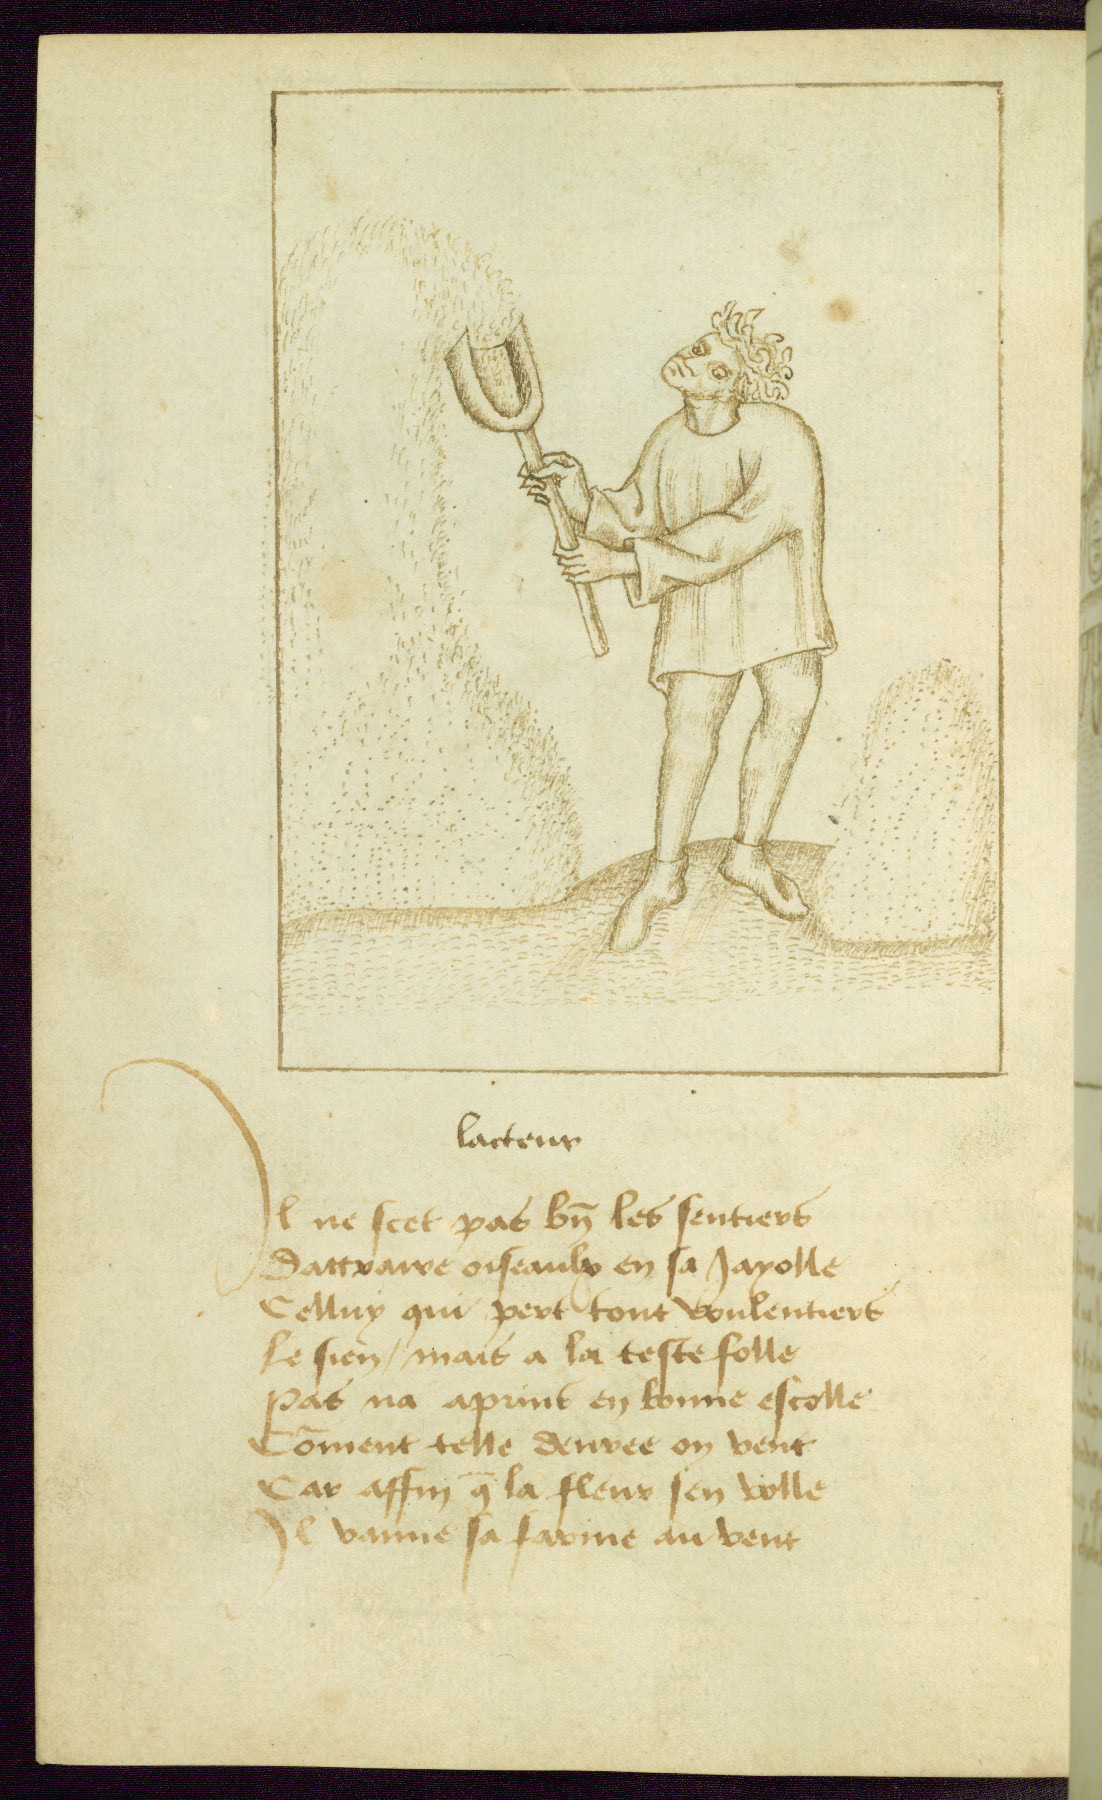 lacteur
Il ne scet pas bn̄ les sentiers
Dattraire oiseaulx en sa Jayolle
Celluy qui pert tout voulentiers
Le sien / mais a la teste folle
Pas na aprint en bonne escolle
Cōment telle denree on vent
Car affin q̄ la fleur sen volle
Il vanne sa farine au vent